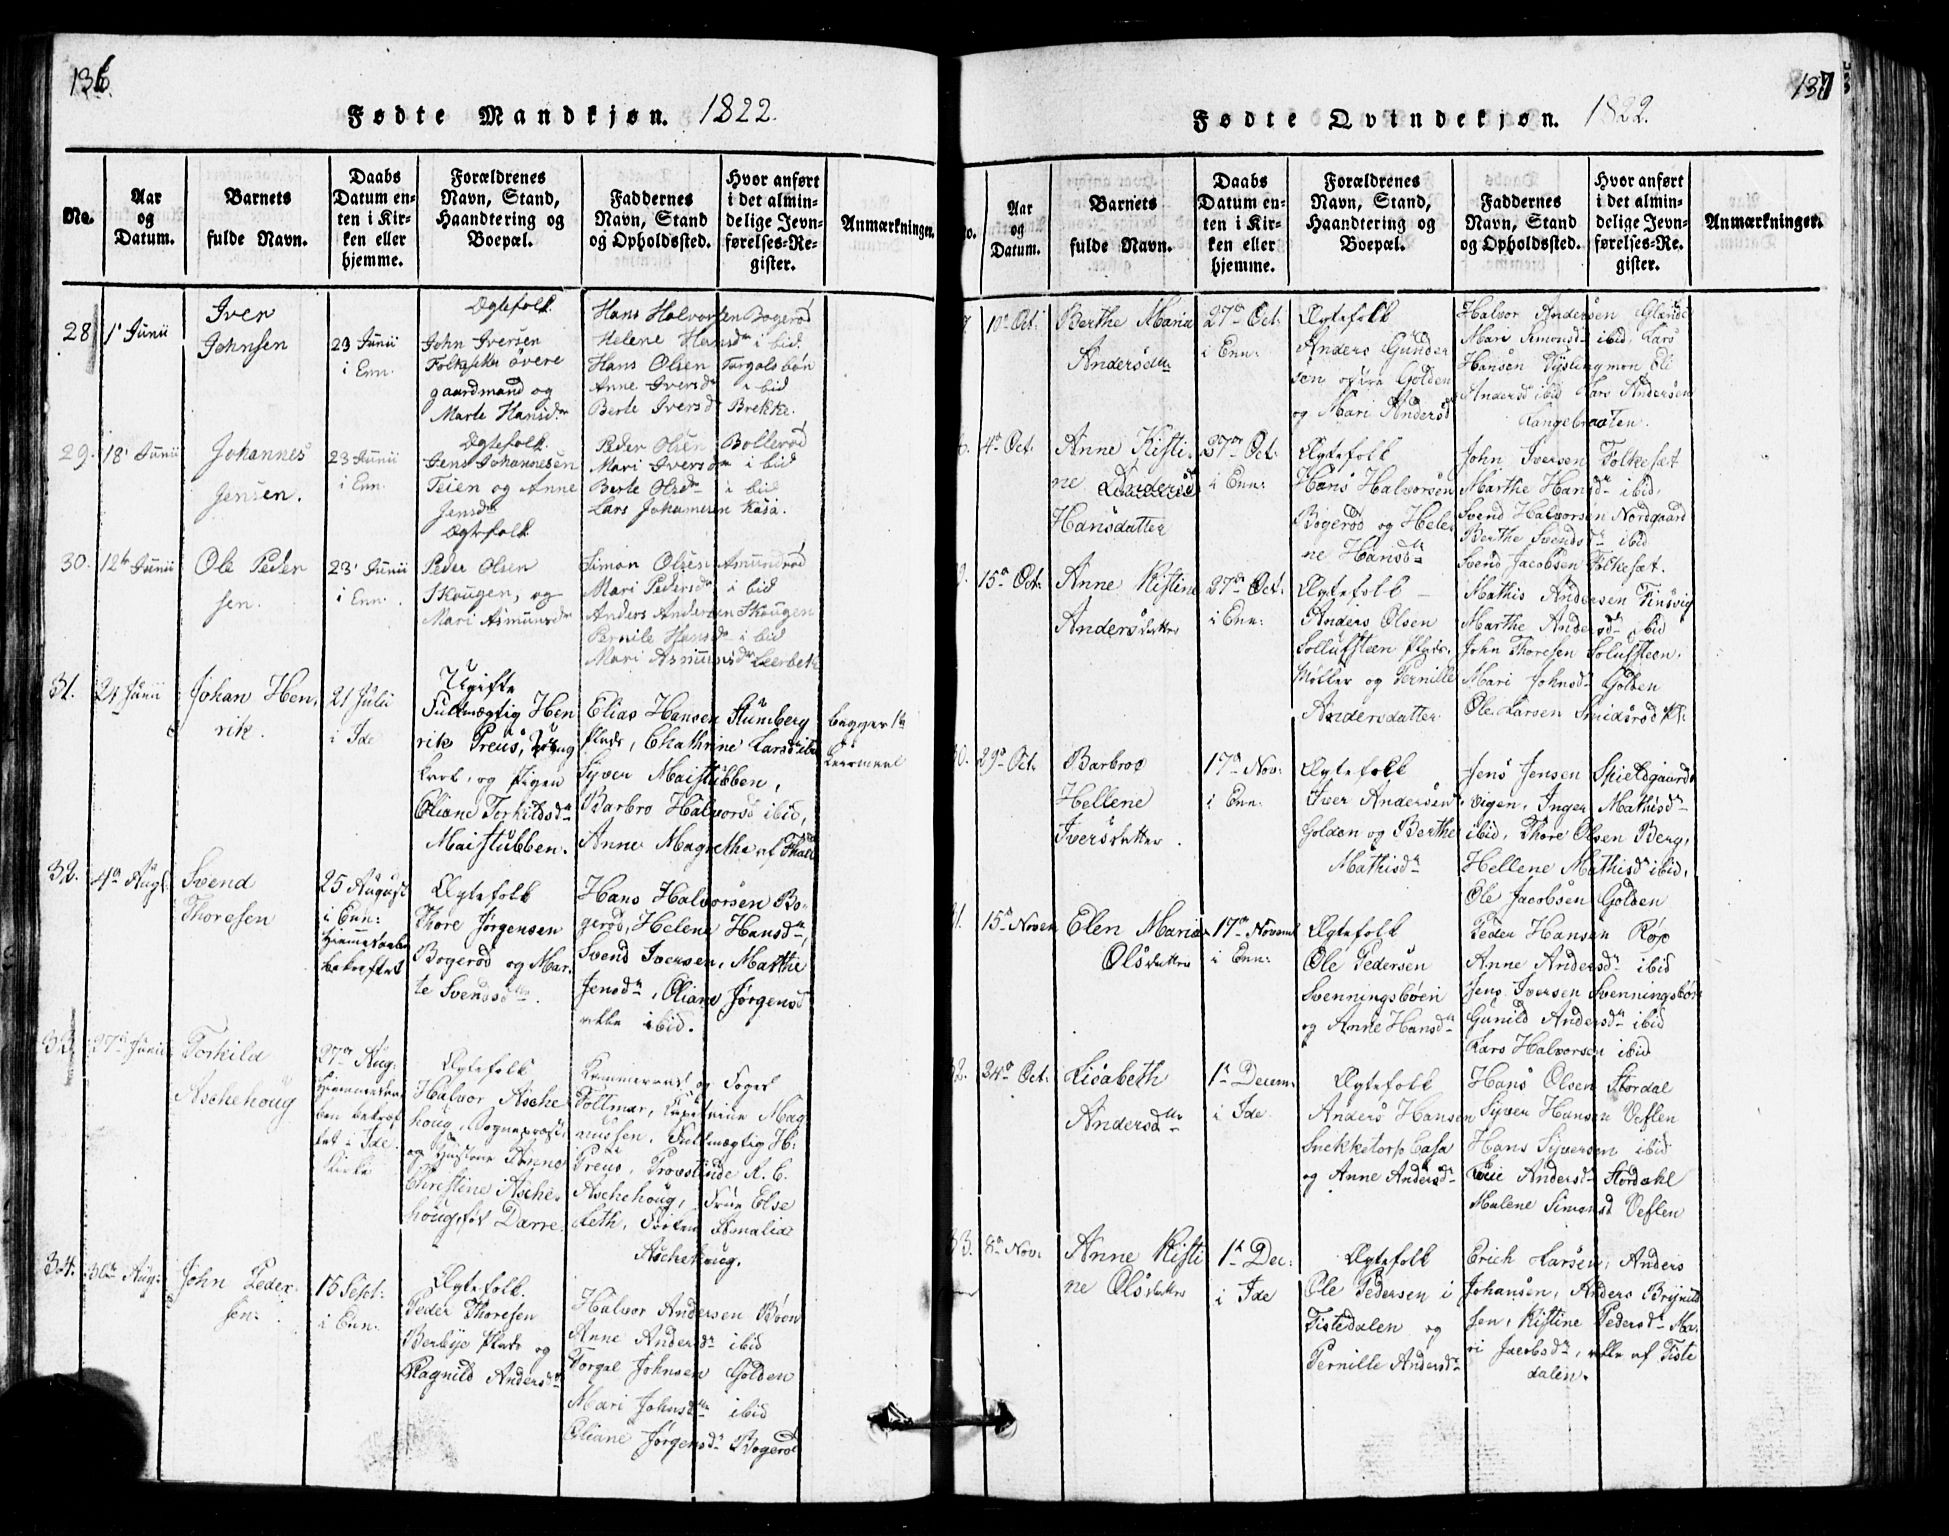 136
Fødte Mandkjøn. 1822.
No.
Aar og Datum.
Barnets fulde Navn.
Daabs Datum enten i Kirken eller hjemme.
Forældrenes Navn, Stand, Haandtering og Boepæl.
Faddernes Navn, Stand og Opholdssted.
Hvor anført i det almindelige Jevnførelses-Register.
Anmærkninger.
28
1' Junii
Iver
Johnsen
23 Junii
i Enn.
Ægtefolk
John Iversen
øvre
gaardmand og
Marte Hansdr
Hans Halvorsen Bogerød
Helene Hansdr ibid
Hans Olsen Torgalsbøn
Anne Iversdr ibid
Berte Iversdr Brekke.
29.
18' Junii
Johannes
Jensen.
23 Junii
i Enn.
Ægtefolk
Jens Johannesen
Teien og Anne
Jensdr
Peder Olsen Bollerød
Mari Iversdr ibid
Berte Olsdr ibid
Lars Johannesen Kasa.
30.
12te Junii
Ole Peder
sen.
23' Junii
i Enn.
Ægtefolk
Peder Olsen
Skougen, og
Mari Asmunsdr
Simon Olsen Amundrød
Mari Pedersdr ibid
Anders Andersen Skougen
Pernile Hansdr ibid
Mari Asmunsdr Leerbek
31.
24 Junii
Johan Hen,
rik.
21 Julii
i Ide
Ugifte
Fuldmægtig Hen
rik Preus,
og Pigen
Oliane Torkildsdr
Maistubben.
Elias Hansen Stumberg
Plads, Chathrine Larsdr ibid
Syver Maistubben,
Barbro Halvorsd ibid,
Anne Magrethe af
begger 1te
Leiermaal
32.
4de Augl.
Svend
Thoresen
25 August
i Enn:
Hjemmedaaben
bekræftet
Ægtefolk
Thore Jørgensen
Bogerød og Mar.
te Svendsdr.
Hans Halvorsen Bo-
gerød, Helene Hansdr,
Svend Iversen, Marthe
Jensdr, Oliane Jørgensd
alle ibid.
33.
27de Junii
Torkild
Aschehoug
27de Aug.
Hjemmedaa
ben bekræf
tet i Ide
Kirke
Ægtefolk
Halvor Asche
houg, Sognepræst,
og Hustrue Anne
Christine Asche-
houg, fød Darre.
Kammerraad og Foged
Foltmar, Capitaine Mag
nussen, Fuldmægtig H:
Preus, Provstinde A. C.
Aschehoug, Frue Else
Leth, Frøken Amalia
Aschehoug.
34.
30te Aug:
John Peder-
sen:
15 Sept:
i Enn:
Ægtefolk.
Peder Thoresen
Berbye Plads og
Ragnild Andersdr
Halvor Andersen Bøen
Anne Andersdr ibid
Torgal Johnsen Golden
Mari Johnsdr ibid
Oliane Jørgensdr Bogerød
137
Fødte Qvindekjøn. 1822.
No.
Aar og Datum.
Barnets fulde Navn.
Daabs Datum enten i Kirken eller hjemme.
Forældrenes Navn, Stand, Haandtering og Boepæl.
Faddernes Navn, Stand og Opholdssted.
Hvor anført i det almindelige Jevnførelses-Re. gister.
Anmærkninger.
10de Oct:
Berthe Maria
Andersdtr
27de Oct:
i Enn:
Ægtefolk
Anders Gunder
sen øvre Golden
og Mari Andersd
Halvor Andersen
Mari Simonsd ibid, Lars
Hansen
Andersd ibid Lars Andersen
Langebraaten.
4de Oct:
Anne Kisti,
ne Andersd
Hansdatter
27de Oct:
i Enn:
Ægtefolk
Hans Halvorsen
Bogerød og Hele
ne Hansdr
John Iversen Folkesæt
Marthe Hansdr ibid,
Svend Halvorsen Nordgaard
Berthe Svendsdr ibid
Svend Jacobsen Folkesæt.
15de Oct.
Anne Kistine
Andersdatter
27de Oct:
i Enn:
Ægtefolk
Anders Olsen
Sollufsteen Plads.
Møller og Pernille
Andersdatter
Mathis Andersen Finsvig
Marthe Andersdr ibid
John Thoresen Solufsteen.
Mari Johnsdr Golden
Ole Larsen Smidsrød Pl:
29de Oct:
Barbroe
Hellene
Iversdatter.
17de Nov:
i Enn:
Ægtefolk
Iver Andersen
Golden og Berthe
Mathisdr
Jens Jensen Skieldgaards
vigen, Inger Mathisdr
ibid, Thore Olsen Berg,
Hellene Mathisdr ibid,
Ole Jacobsen Golden
15de Novem
Elen Maria
Olsdatter
17de Novembr
i Enn:
Ægtefolk
Ole Pedersen
Svenningsbøen
og Anne Hansdr
Peder Hansen Røp
Anne Andersdr ibid
Jens Iversen Svenningsbøn
Gunild Andersdr ibid
Lars Halvorsen ibid
24de Oct:
Lisabeth
Andersdtr
1te Decem:
i Ide
Ægtefolk
Anders Hansen
Snekketorp Casa
og Anne Andersdr
Hans Olsen Stordal
Syver Hansen Veflen
Hans Syversen ibid
Andersdr Stordahl
Malene Simonsd Veflen
33.
8de Nov:
Anne Kisti
ne Olsdatter
1te Dec:
i Ide
Ægtefolk
Ole Pedersen i
Tistedalen og
Pernille Andersdr
Erich Larsen, Anders
Johansen, Anders Brynild
sen, Kistine Pedersdr Ma-
ri Jacobsdr, alle af Tiste
dalen.